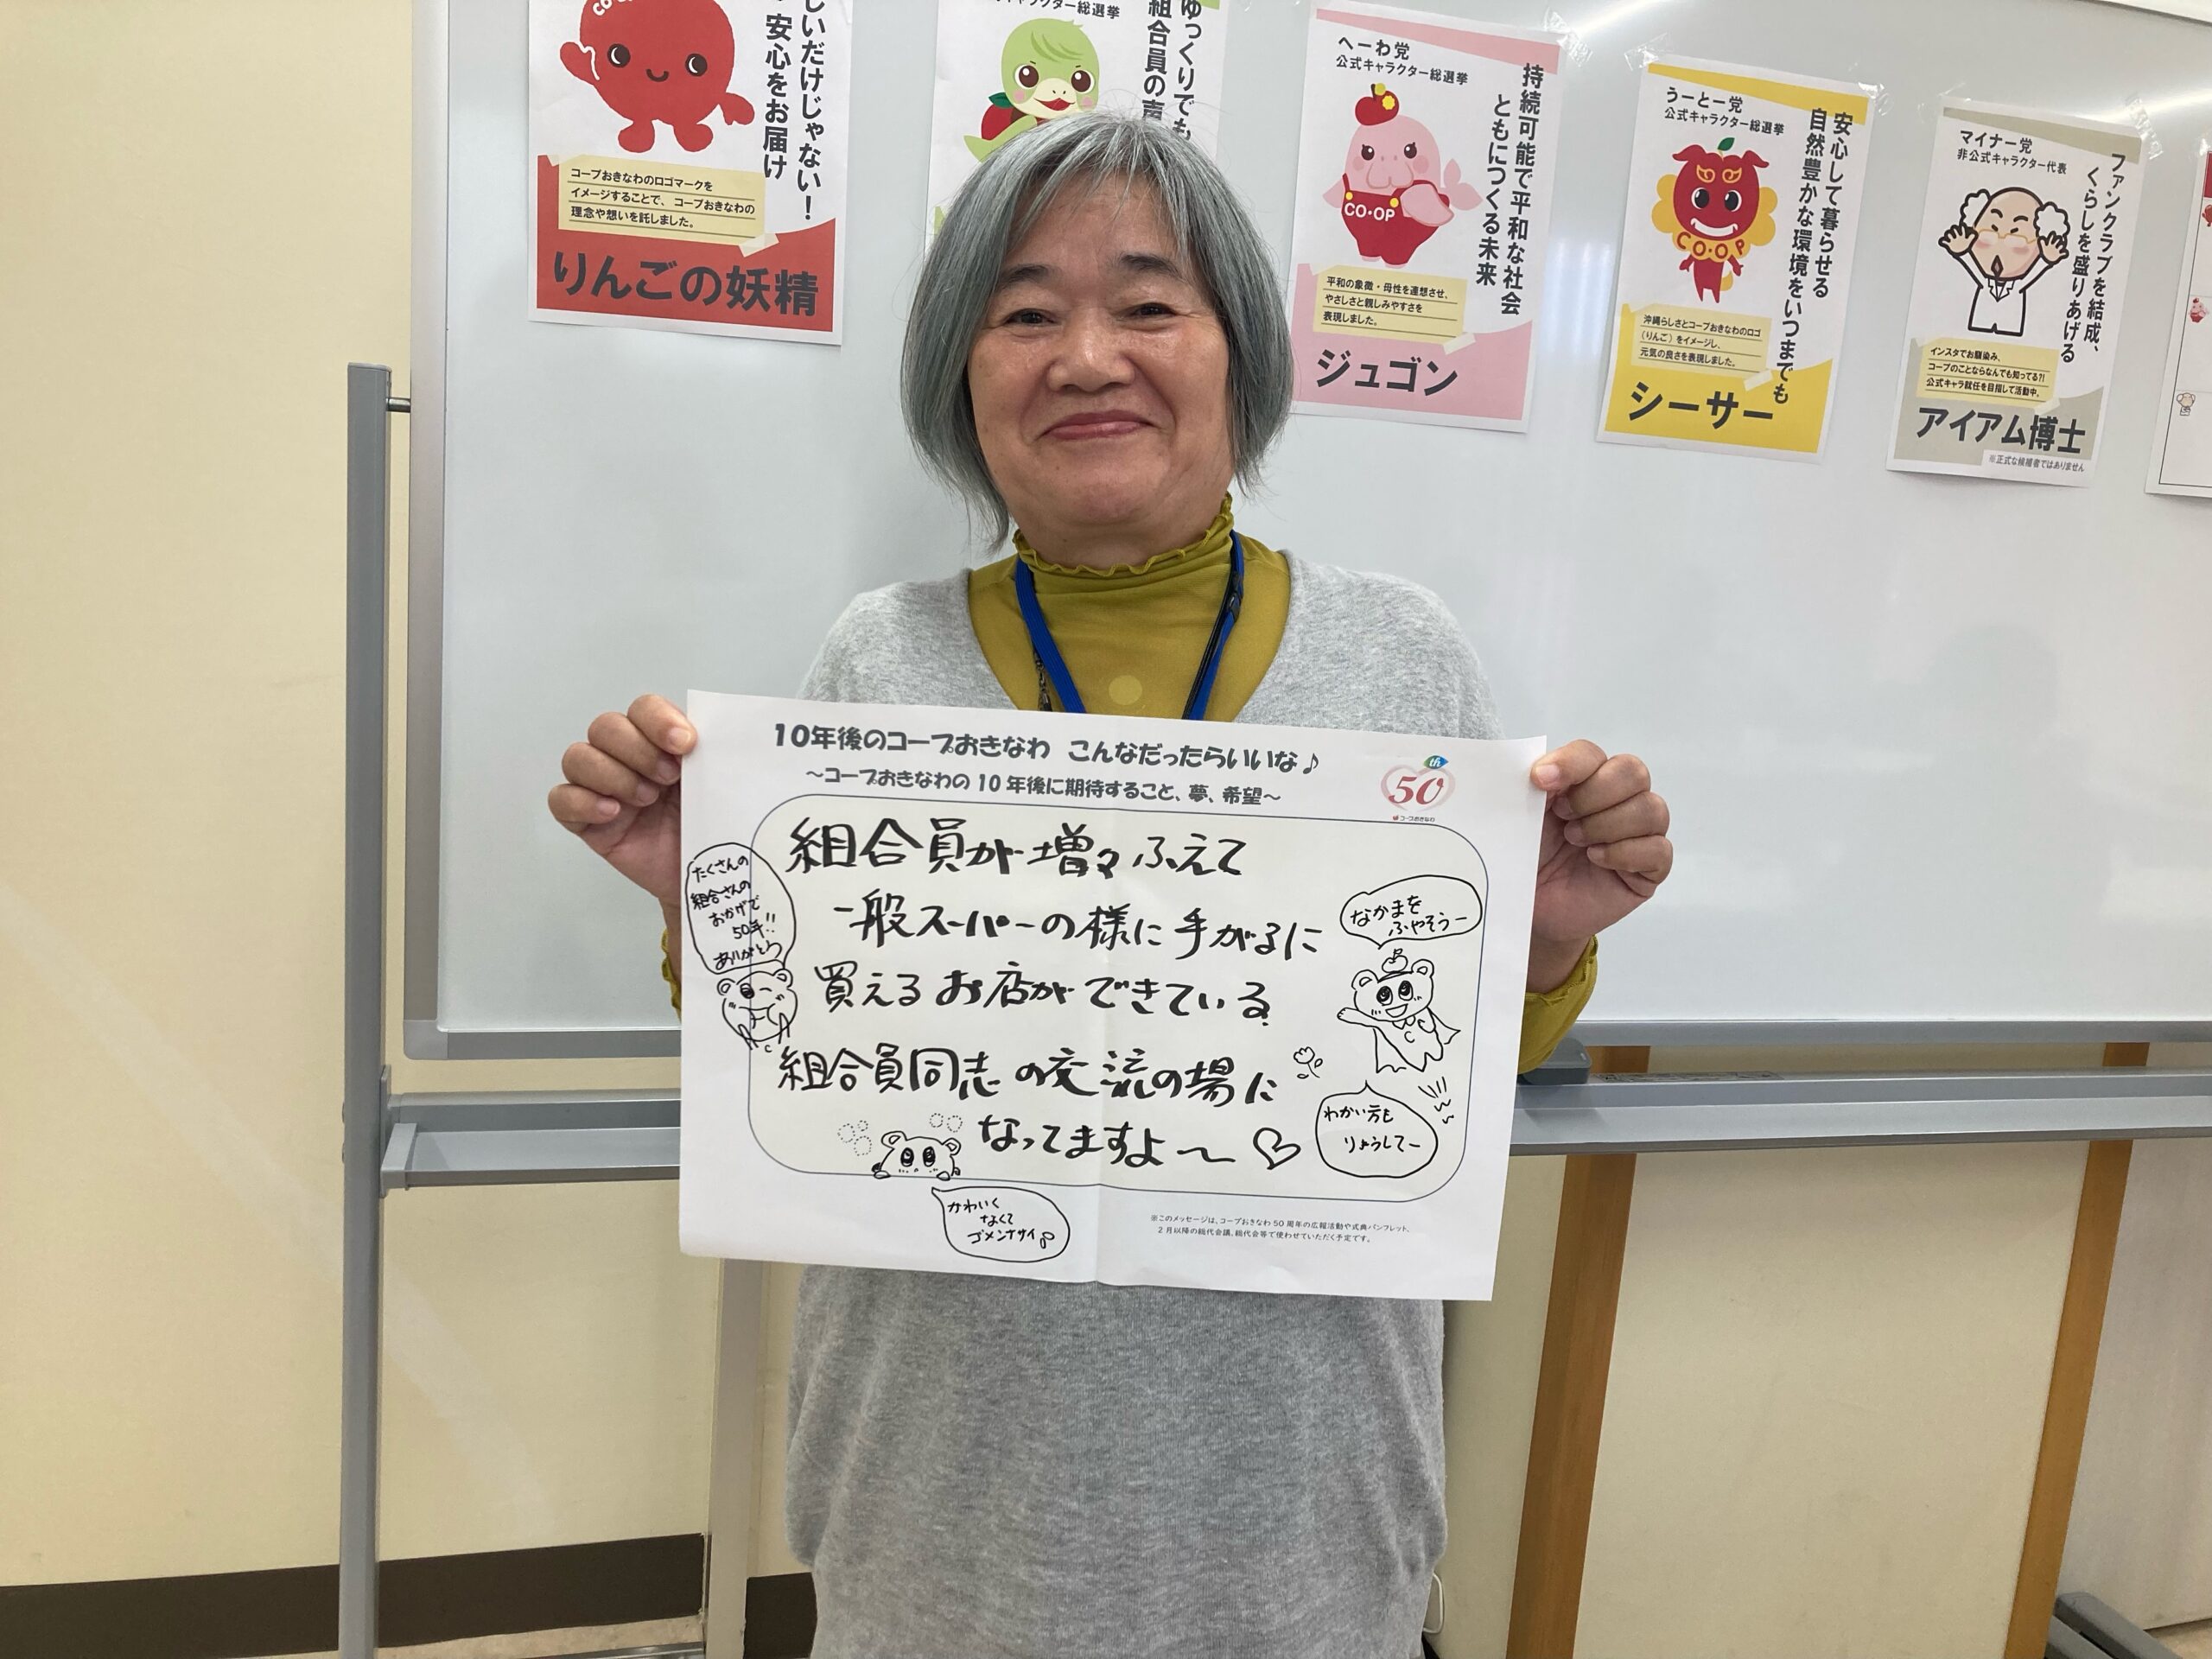 しいだけじゃない!
安心をお届け
コープおきなわのロゴマークを
イメージすることで、コープおきなわの
理念や想いを託しました。
りんごの妖精
キャラクター総選挙
ゆっくりでも
組合員の声
へーわ党
公式キャラクター総選挙
持続可能で平和な社会
ともにつくる未来
CO・OP
平和の象徴・母性を連想させ、
やさしさと親しみやすさを
表現しました。
ジュゴン
うーとー党
公式キャラクター総選挙
安心して暮らせる
自然豊かな環境をいつまでも
CO・OP
沖縄らしさとコープおきなわのロゴ
(りんご)をイメージし、
元気の良さを表現しました。
シーサー
マイナー党
非公式キャラクター代表
ファンクラブを結成、
くらしを盛りあげる
インスタでお馴染み、
コープのことならなんでも知ってる?!
公式キャラ就任を目指して活動中。
アイアム博士
※正式な候補者ではありません
10年後のコープおきなわ こんなだったらいいな♪
~コープおきなわの10年後に期待すること、夢、希望~
50
コープおきなわ
組合員が増々ふえて
一般スーパーの様に手がるに
買えるお店ができている。
組合員同志の交流の場に
なってますよ~♡
たくさんの
組合さんの
おかげで
50年!!
ありがとう
なかまを
ふやそうー
わかい方も
りようしてー
かわいく
なくて
ゴメンナサイ
※このメッセージは、コープおきなわ50周年の広報活動や式典パンフレット、
2月以降の総代会議、総代会等で使わせていただく予定です。